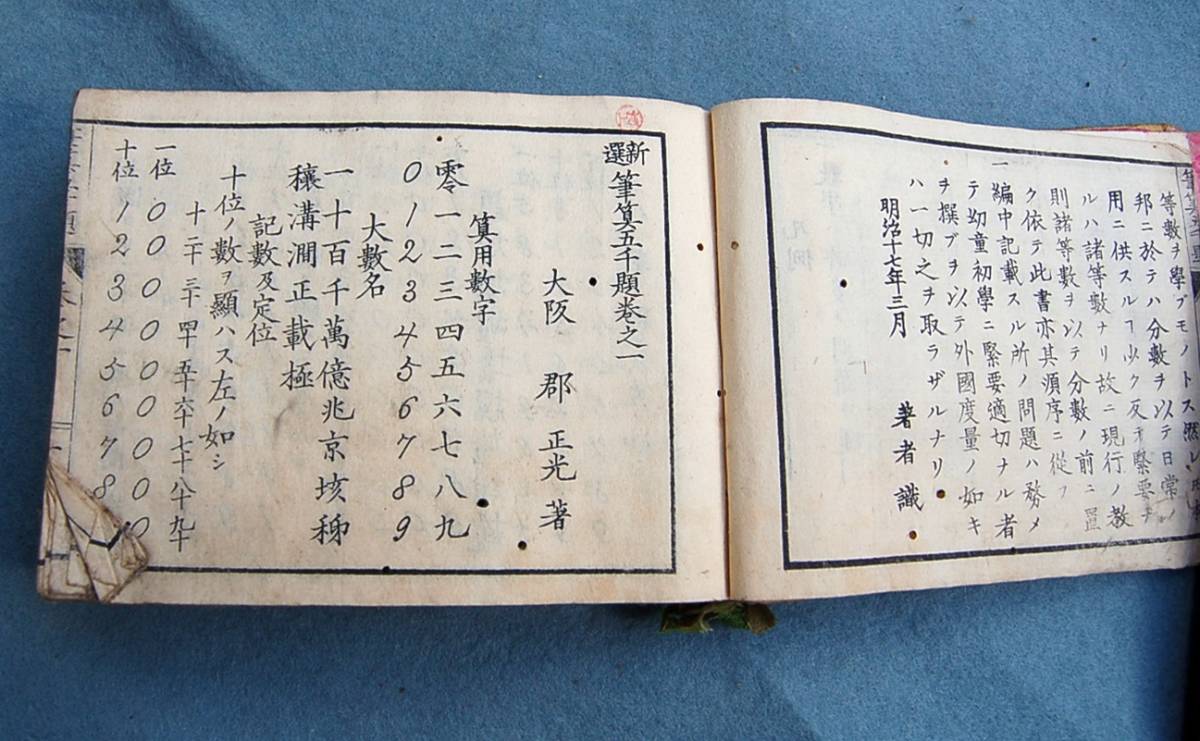 等數ヲ學ブモノトス然レ
邦ニ於テハ分數ヲ以テ日常ノ
用ニ供スルヿ少ク反テ緊要ナ
ルハ諸等數ナリ故ニ現行ノ教
則諸等數ヲ以テ分數ノ前ニ置
ク依テ此書亦其順序ニ從フ
一 編中記載スル所ノ問題ハ務メ
テ幼童初學ニ緊要適切ナル者
ヲ撰ブヲ以テ外國度量ノ如キ
ハ一切之ヲ取ラザルナリ
明治十七年三月 著者識
新選筆算五千題卷之一
大阪 郡 正光 著
算用數字
零一二三四五六七八九
0 1 2 3 4 5 6 7 8 9
大數名
一十百千萬億兆京垓秭
穰溝澗正載極
記數及定位
十位ノ數ヲ顯ハス左ノ如シ
十 二十 三十 四十 五十 六十 七十 八十 九十
一位 0 0 0 0 0 0 0 0 0
十位 1 2 3 4 5 6 7 8